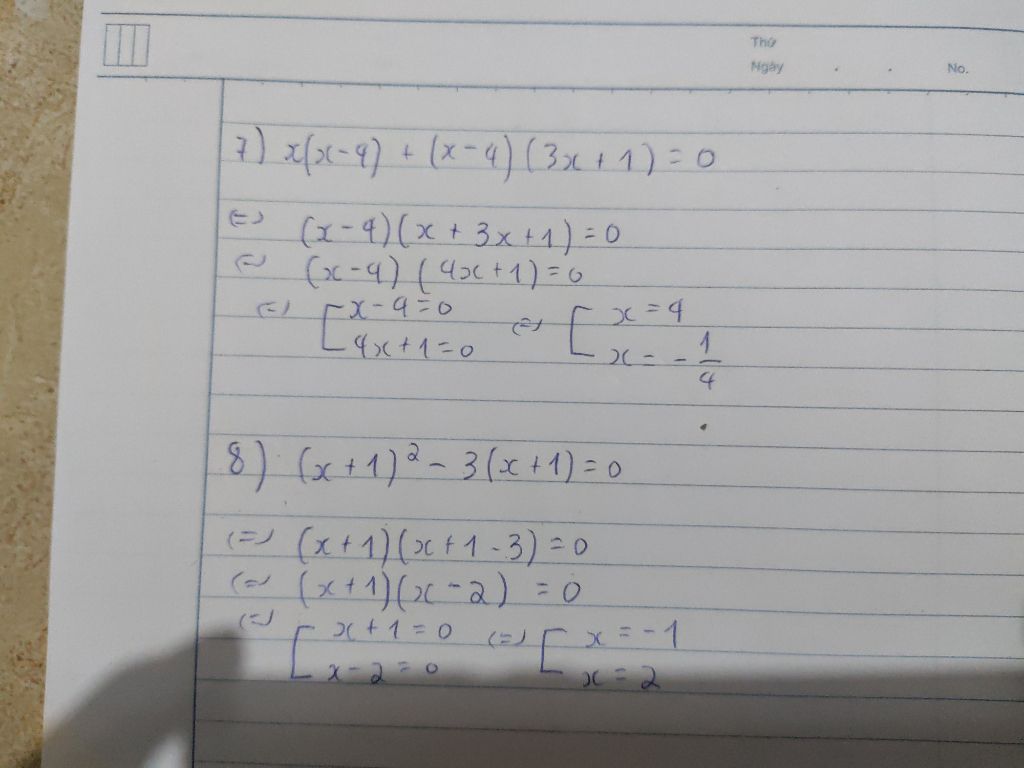 Thứ
Ngày . . No.
7) x(x-4) + (x-4)(3x+1)=0
(=) (x-4)(x+3x+1)=0
(=) (x-4)(4x+1)=0
(=) [ x-4=0 (=) [ x=4
4x+1=0 x= -1/4
8) (x+1)² - 3(x+1)=0
(=) (x+1)(x+1-3)=0
(=) (x+1)(x-2) =0
(=) [ x+1=0 (=) [ x=-1
x-2=0 x=2